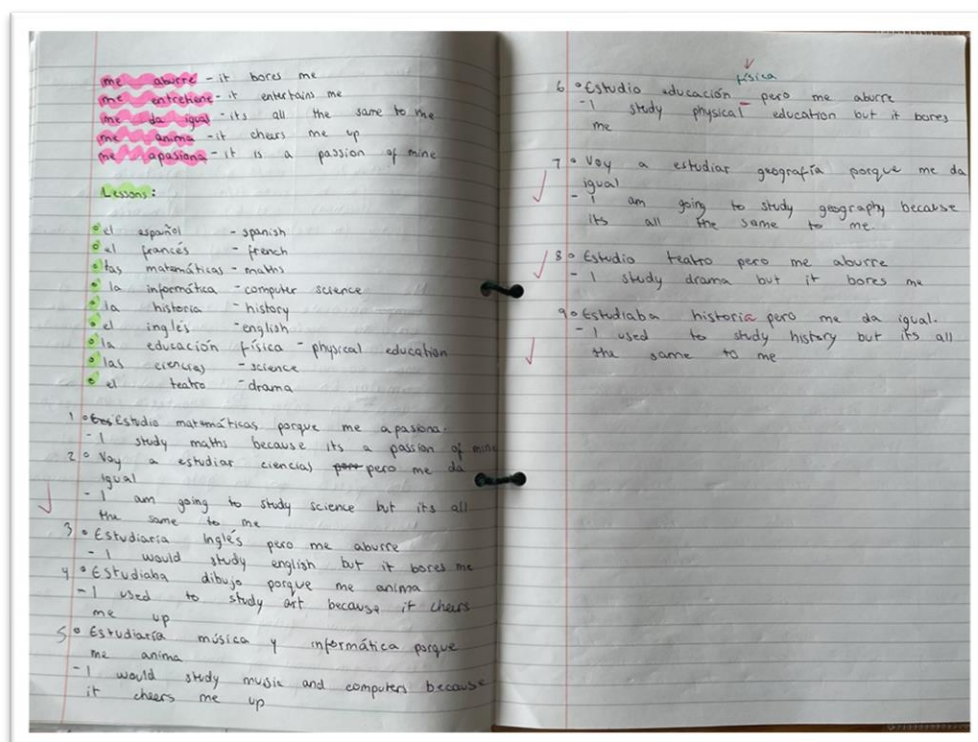 me aburre - it bores me
me entretiene - it entertains me
me da igual - its all the same to me
me anima - it cheers me up
me apasiona - it is a passion of mine
Lessons:
el español - spanish
el francés - french
las matemáticas - maths
la informática - computer science
la historia - history
el inglés - english
la educación física - physical education
las ciencias - science
el teatro - drama
1 Estudio matemáticas porque me apasiona.
- I study maths because its a passion of mine
2 Voy a estudiar ciencias pero me da
igual
- I am going to study science but its all
the same to me
3 Estudiaria inglés pero me aburre
- I would study english but it bores me
4 Estudiaba dibujo porque me anima
- I used to study art because it cheers
me up
5 Estudiaría música y informática porque
me anima
- I would study music and computers because
it cheers me up
física
6 Estudio educación pero me aburre
- I study physical education but it bores
me
7 Voy a estudiar geografía porque me da
igual
- I am going to study geography because
its all the same to me.
8 Estudio teatro pero me aburre
- I study drama but it bores me
9 Estudiaba historia pero me da igual.
- I used to study history but its all
the same to me